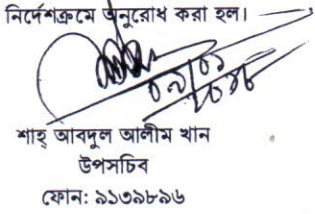 নির্দেশক্রমে অনুরোধ করা হল।
শাহ্ আবদুল আলীম খান
উপসচিব
ফোন: ৯১৩৯৮৯৬